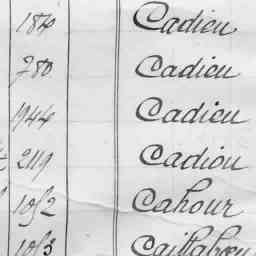 184 Cadieu
780 Cadieu
1944 Cadieu
2119 Cadiou
1052 Cahour
1053